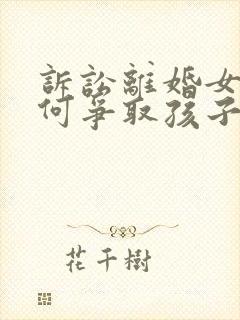 訴訟離婚女
何爭取孩子
花千樹